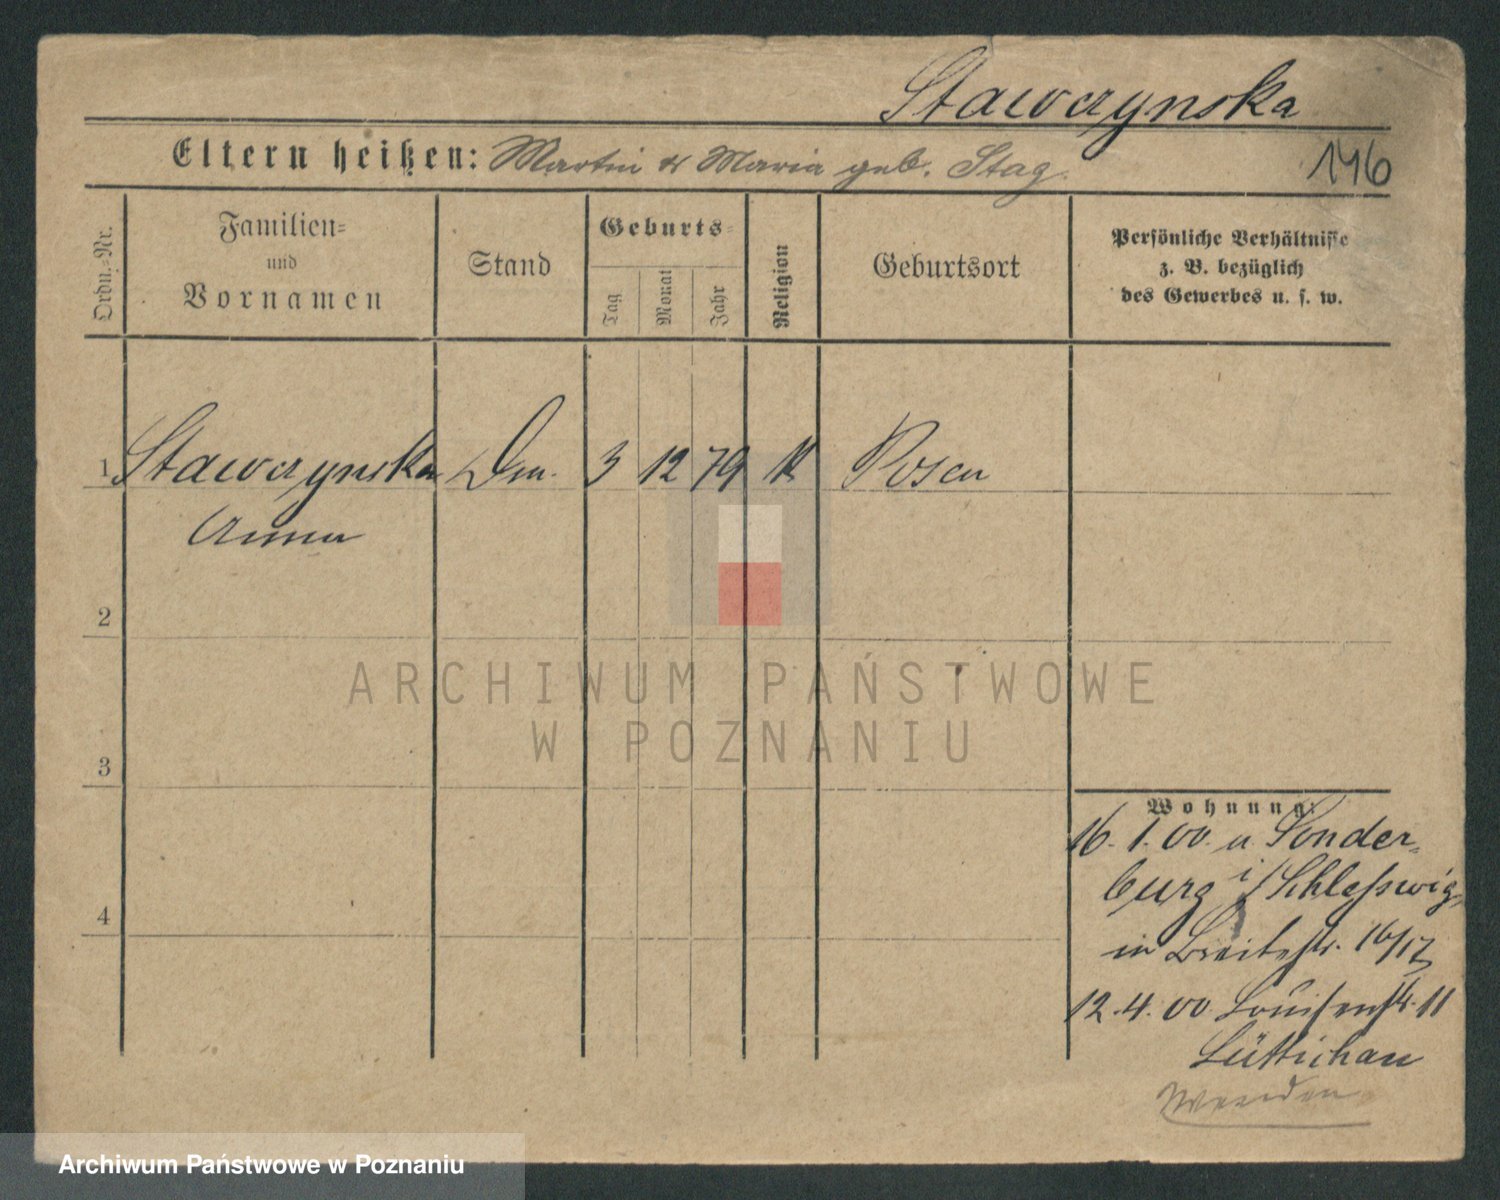 Stawczynska
Eltern heißen: Martin & Maria geb. Stag.
146
Ordn.-Nr.
Familien=
und
Vornamen
Stand
Geburts=
Tag
Monat
Jahr
Religion
Geburtsort
Persönliche Verhältnisse
z. B. bezüglich
des Gewerbes u. s. w.
1 Stawczynska 3 12 79 K Posen
Anna
2
3
4
Wohnung:
16. 1. 00. n. Sonder-
burg i/Schleßwig,
in Breitestr. 16/17
12. 4. 00 Louisenstr. 11
Lüttichau
ARCHIWUM PAŃSTWOWE
W POZNANIU
Archiwum Państwowe w Poznaniu